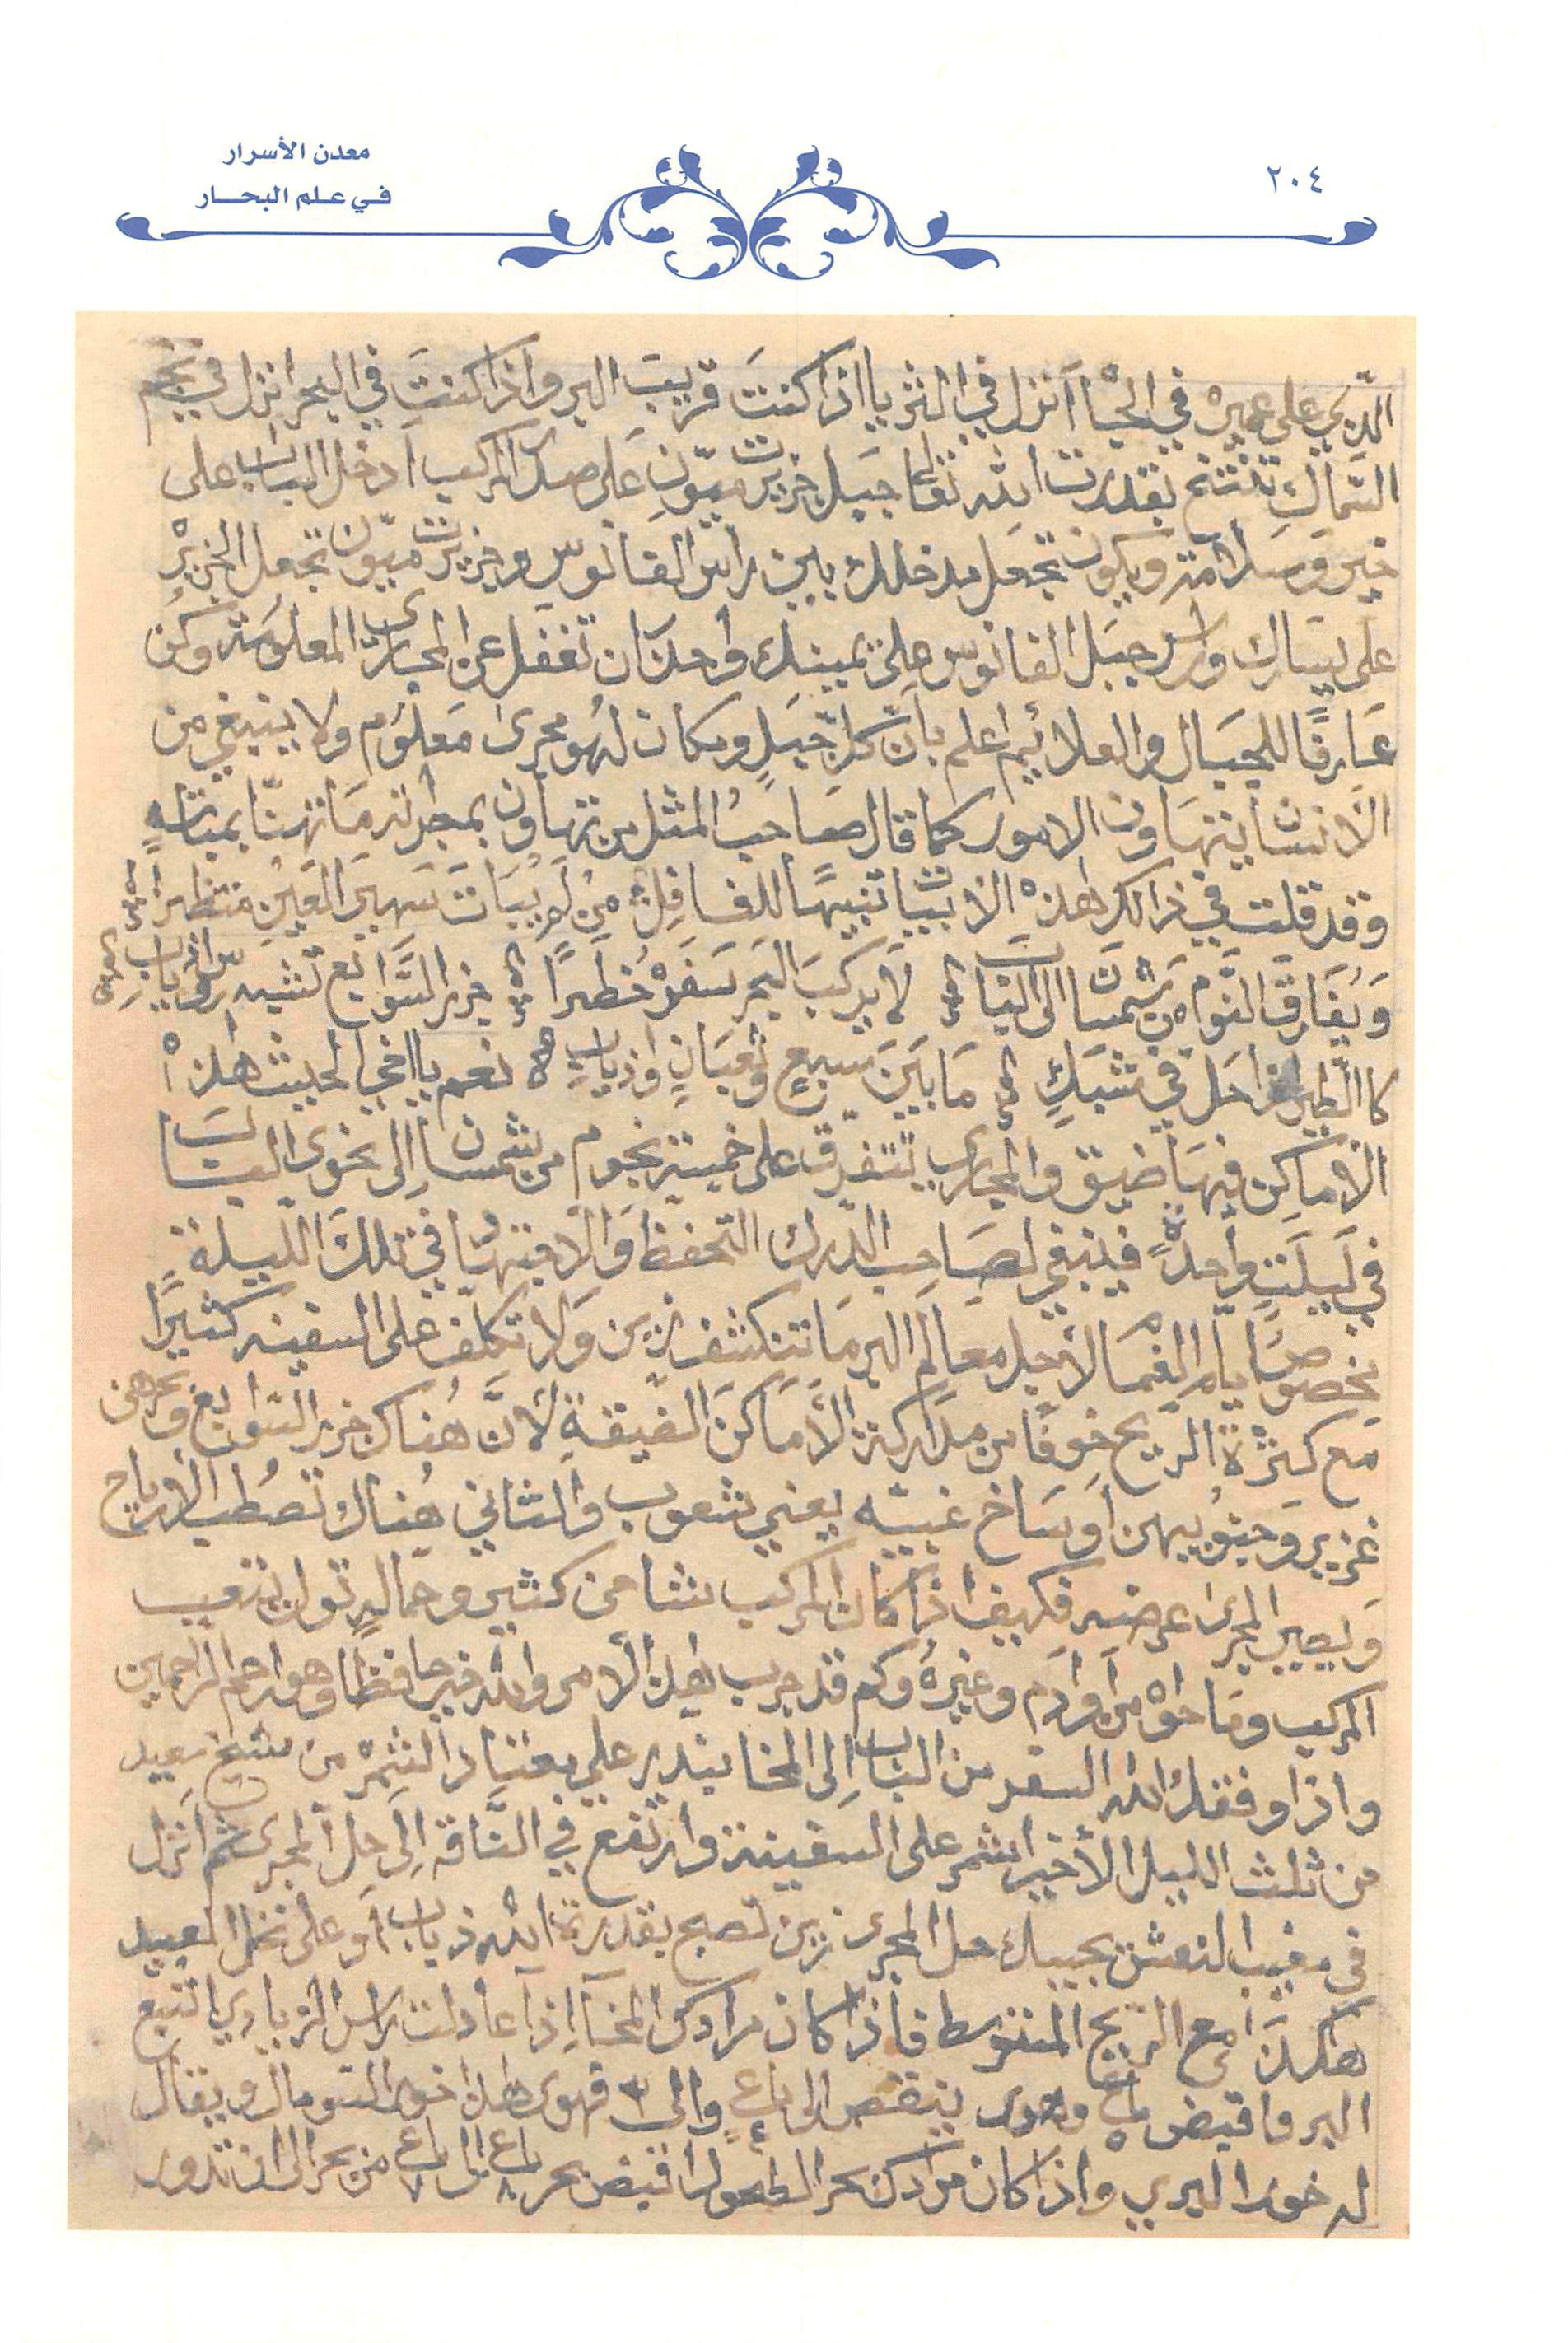 ٢٠٤
معدن الأسرار
في علم البحار
على عميره في انزل في الثريا اذا كنتَ قريب البر واذا كنتَ في البحر انزل في نجم
السماك تنتخ بقدرت الله تعالى جبل جزيرت ميّون على صدر المركب ادخل الباب على
خير وسلامة ويكون تجعل مدخلك بين راس الفانوس وجزيرت ميون تجعل الجزيره
على يسارك وراس جبل الفانوس على يمينك واحذر ان تغفل عن المجارى المعلومة وكن
عَارفًا للجبال والعلائم اعلم بانّ كل جبلٍ ومكان لهو مجرى مَعلوم ولا ينبغي من
الانسان يتهاون الامور كما قال صاحب المثل من تهاون لم تهنّا بمباته
وقد قلت في ذالك هذه الابيات تنبيهًا للغافل من لم يَبَات سَهير العَينِ منتظرًا
وَيُفَارق النوم من شمسان الى الباب لا يركب البحر سَفَرُه خطرًا جزر السَّوابع تشبه
كا الطير في شبَكٍ مَا بَين سبعٍ وثعبَانٍ واذياب نعم يا اخي الحيث هذه
الاماكن فيها ضيق والمجارى تتفرق على خمسة نجوم من شمسان إلى نحوى الباب
في لَيلَت واحدةً فينبغي لصَاحِب الدرك التحفظ وَالانتباه في تلك الليلة
بخصوص ايام الغما لأجل معالم البر مَا تنكشف زين وَلا تكلف على السفينه كثيرًا
مَع كثرة الريح خوفًا من مداركة الأماكن الضيقةِ لأنَّ هُناك جزر السوابع وبحرهن
غزير وَحيثُ بيهن اوسَاخ غبيّه يعني شعوب والثاني هُناك تصطلب الأرياح
وَيصير المجرى عرضه فكيف اذا كان المركب شامن كثير وحماله تول بتعيب
المركب ومَا حواه من اوادم وغيرهُ وكم قد جرب هذا الأمر والله خير حافظًا وهو ارحم الراحمين
واذا وفقك الله السفر من الباب إلى المخا بندير على معتاد النثمره من شيخ سعيد
من ثلث الليل الأخير اشمر على السفينة وارتفع في النَّاقه إِلى حل المجرى ثم انزل
في مغيب النعش بجيبك حل المجرى زين تصبح بقدرة الله ذياب أو على نخل السعيد
هاكذَا مع الريح المتوسط فاذا كان مرادك المخا إذا عادلت راس الزيادي اتبع
البر واقبض باع ٥ وهوى ينقص الى باع ٤ والى ٣ فهوى هذا خور السومال ويقال
له خور البري واذا كان مرادك بحر الطعوس اقبض بحر باع ٨ الى باع ٧ من بحر الى ان تدور